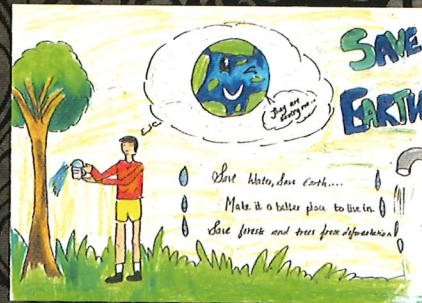 SAVE
EARTH
They are
saving me...
Save Water, Save Earth....
Make it a better place to live in.
Save forests and trees from deforestation!